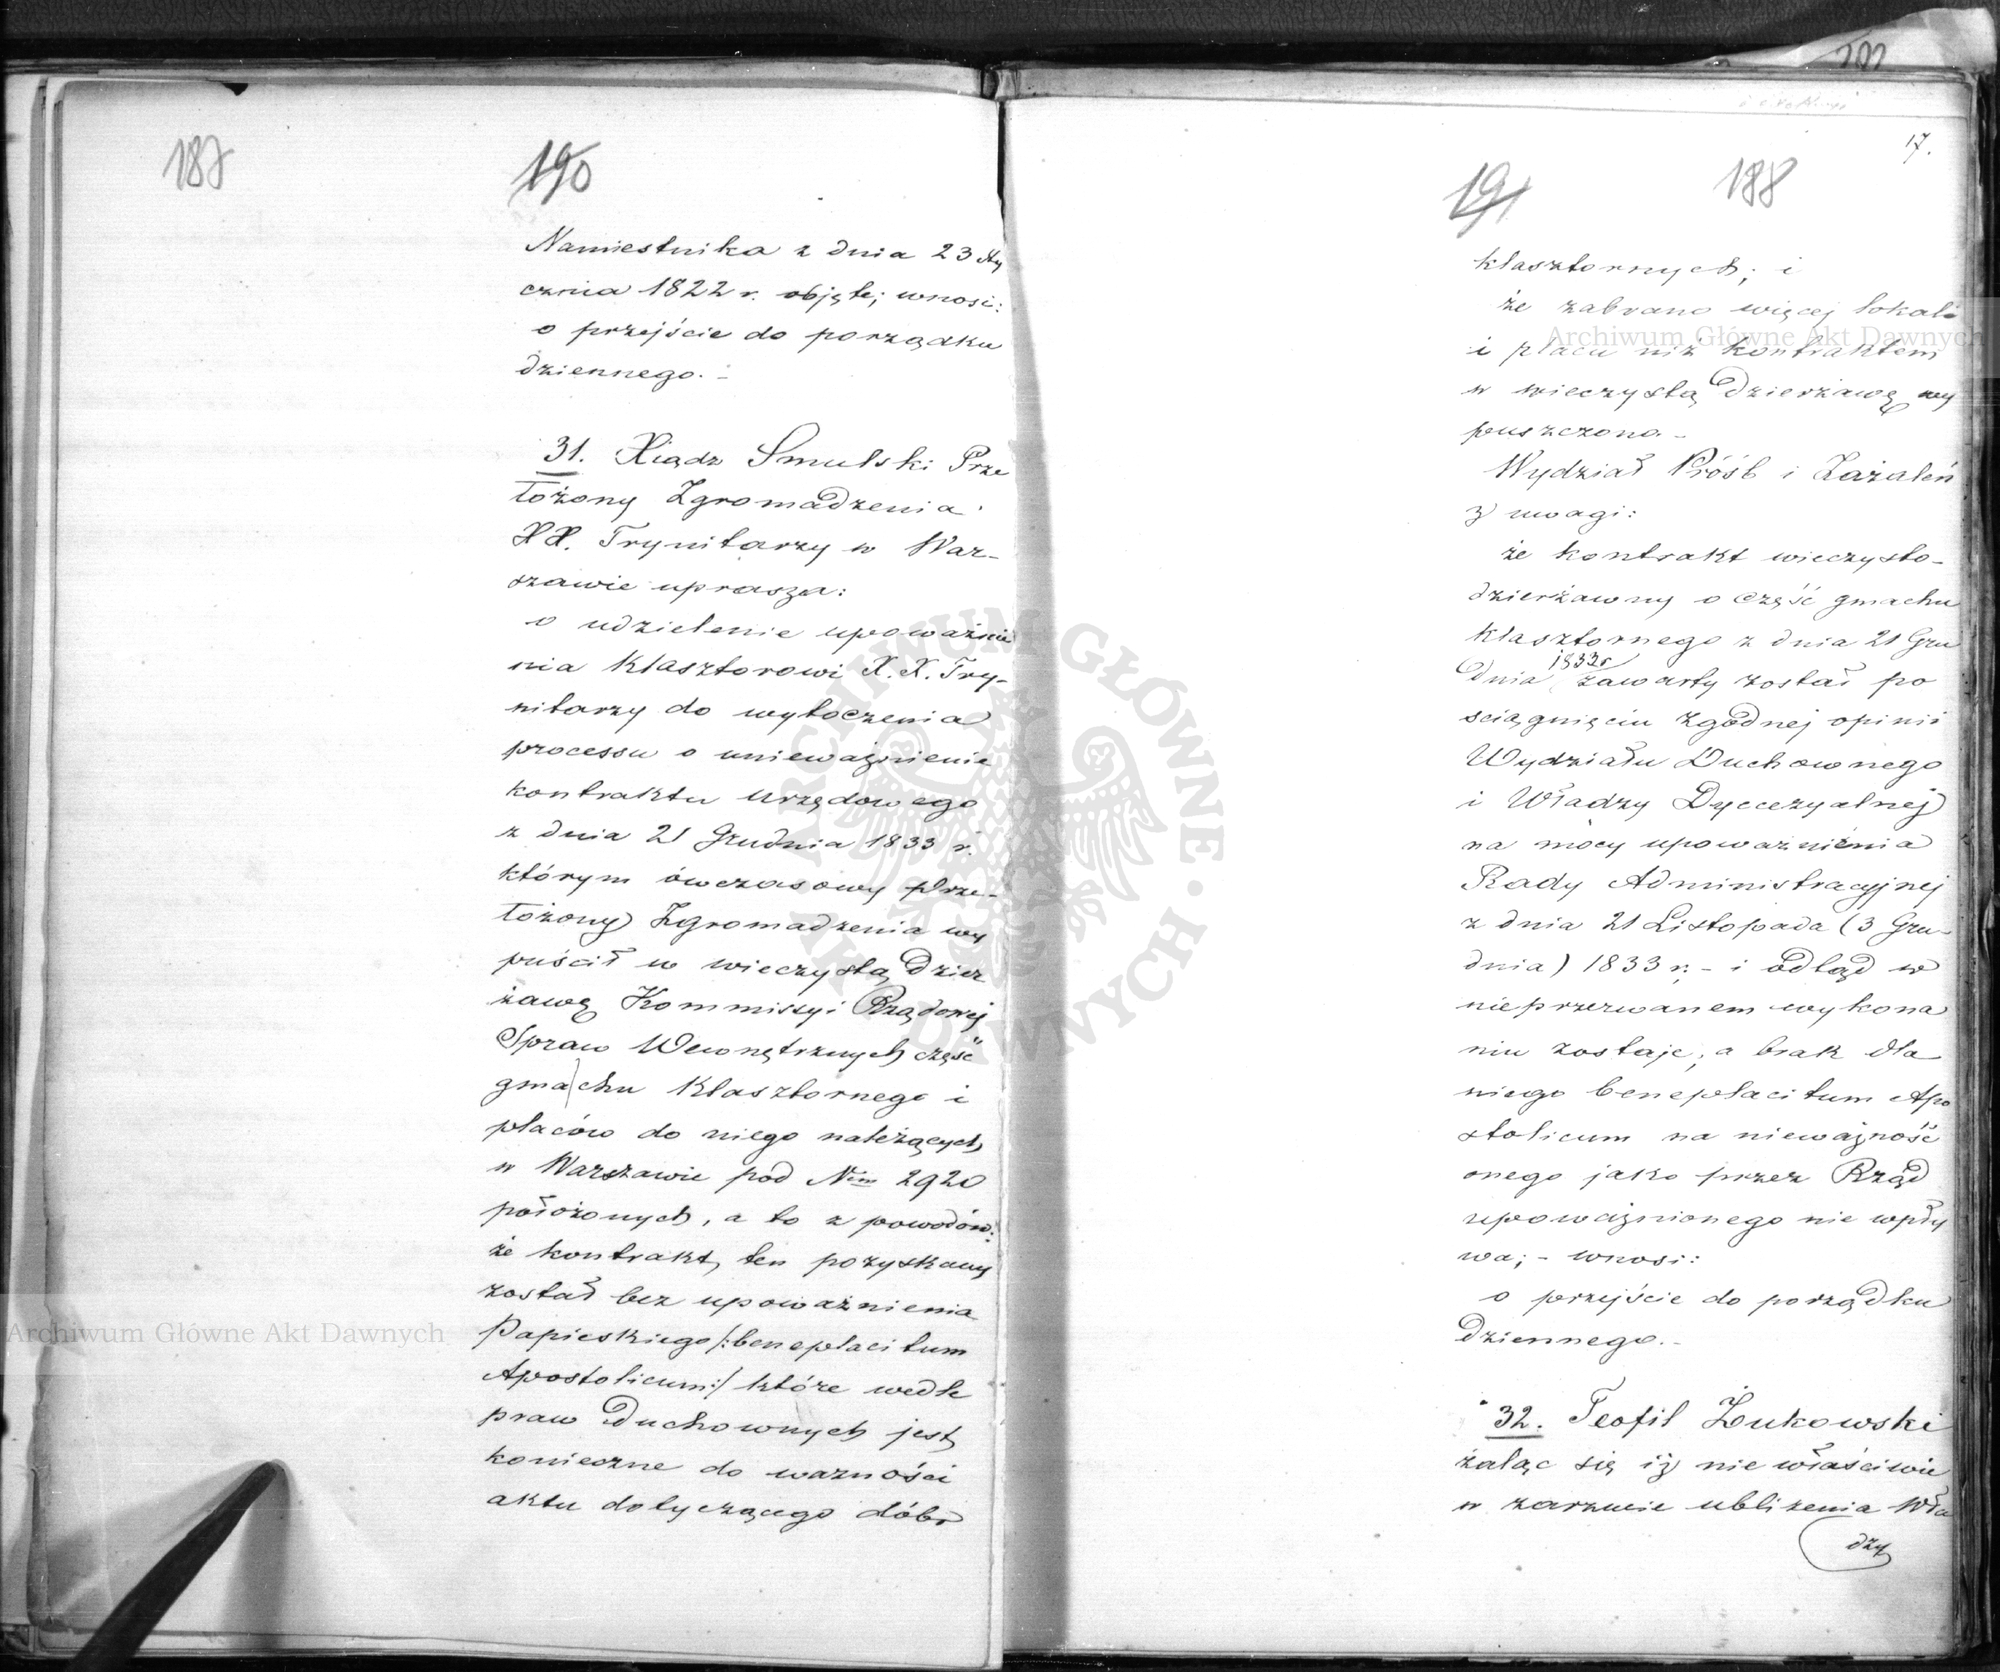 187
190
Namiestnika z dnia 23 Sty
cznia 1822 r. objęte; wnosi:
o przejście do porządku
dziennego. -
31. Xiądz Smulski Prze
łożony Zgromadzenia
XX. Trynitarzy w War-
szawie uprasza:
o udzielenie upoważnie
nia Klasztorowi X. X. Try-
nitarzy do wytoczenia
processu o unieważnienie
kontraktu urzędowego
z dnia 21 Grudnia 1833 r.
którym ówczasowy Prze-
łożony Zgromadzenia wy
puścił w wieczystą Dzier
żawę Kommissyi Rządowej
Spraw Wewnętrznych część
gmachu Klasztornego i
placów do niego należących
w Warszawie pod Nem 2920
położonych, a to z powodów:
że kontrakt ten pozyskany
został bez upoważnienia
Papieskiego /:beneplacitum
Apostolicum:/ które wedle
praw Duchownych jest
konieczne do ważności
aktu dotyczącego dóbr
17.
191
188
klasztornych; i
że zabrano więcej lokali
i placu niż kontraktem
w wieczystą Dzierżawę wy
puszczono. -
Wydział Próśb i Zażaleń
z uwagi:
że kontrakt wieczysto-
dzierżawny o część gmachu
klasztornego z dnia 21 Gru
dnia 1833 r zawarty został po
ściągnięciu zgodnej opinii
Wydziału Duchownego
i Władzy Dyecezyalnej
na mocy upoważnienia
Rady Administracyjnej
z dnia 21 Listopada (3 Gru-
dnia) 1833 r; - i odtąd w
nieprzerwanem wykona
niu zostaje, a brak dla
niego beneplacitum Apo
stolicum na nieważność
onego jako przez Rząd
upoważnionego nie wpły
wa; - wnosi:
o przejście do porządku
Dziennego. -
32. Teofil Żukowski
żaląc się iż nie właściwie
w zarzucie ubliżenia Wła
dzy
Archiwum Główne Akt Dawnych
Archiwum Główne Akt Dawnych
ARCHIWUM GŁÓWNE AKT DAWNYCH